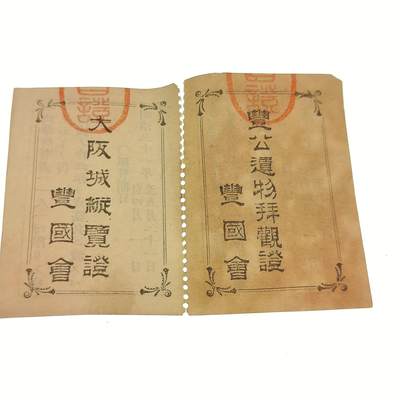 豐公遺物拜觀證
豐國會
大阪城縱覽證
豐國會